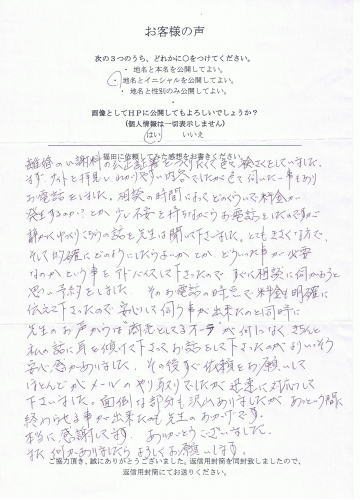 お客様の声
次の3つのうち、どれかに○をつけてください。
・地名と本名を公開してよい。
・地名とイニシャルを公開してよい。
・地名と性別のみ公開してよい。
画像としてHPに公開してもよろしいでしょうか?
(個人情報は一切表示しません)
はい いいえ
福田に依頼してみた感想をお書きください。
離婚の慰謝料の公正証書をつくりたくて色々検さくをしていました。
まずサイトを拝見し、わかりやすい内容でしたが色々伺いたい事もあり
お電話をしました。相談の時間によってどのくらいで料金が
発生するのか?とか少し不安を持ちながらお電話をしたのですが
静かにゆっくりこちらの話を先生は聞いて下さいました。とてもききじょうずで、
そして的確にどのようにしたらよいかとかどういった事が必要
なのかという事をアドバイスして下さったのですぐに相談に伺おうと
思い予約をしました。そのお電話の時点で料金も明確に
伝えて下さったので安心して伺う事が出来たのと同時に
先生のお声からは商売としてるオーラが何になくきちんと
私の話に耳を傾けて下さってお話をして下さったのがよりいっそう
安心感がありました。その後すぐ依頼をお願いして
ほとんどがメールのやり取りでしたが迅速に対応して
下さいました。面倒な部分も沢山ありましたがあっという間に
終わらせる事が出来たのも先生のおかげです。
本当に感謝してます。ありがとうございました。
また何かありましたらよろしくお願いします。
ご協力頂き、誠にありがとうございました。返信用封筒を同封致しましたので、
返信用封筒にてお送りください。